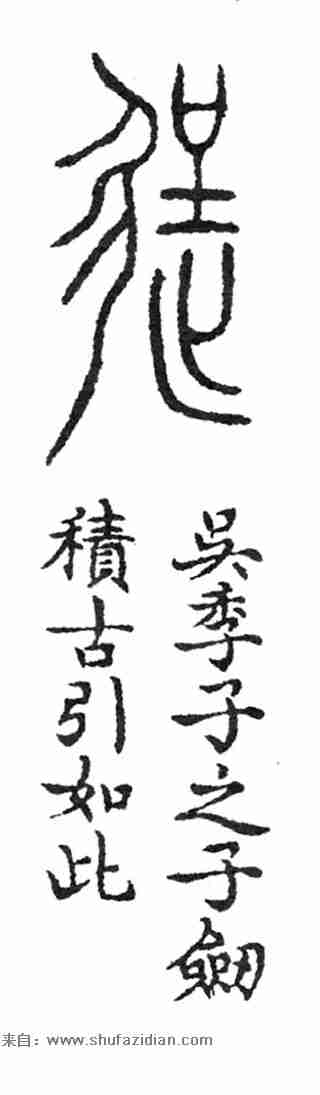 逞
吳季子之子劒
積古引如此
来自：www.shufazidian.com